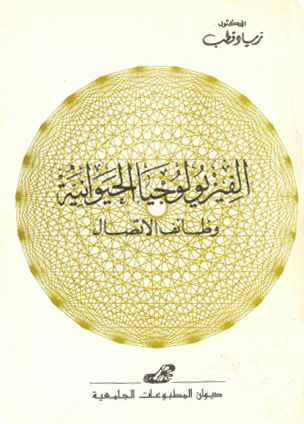 الدكتور
زياد قطب
الفيزيولوجيا الحيوانية
وظائف الاتصال
ديوان المطبوعات الجامعية